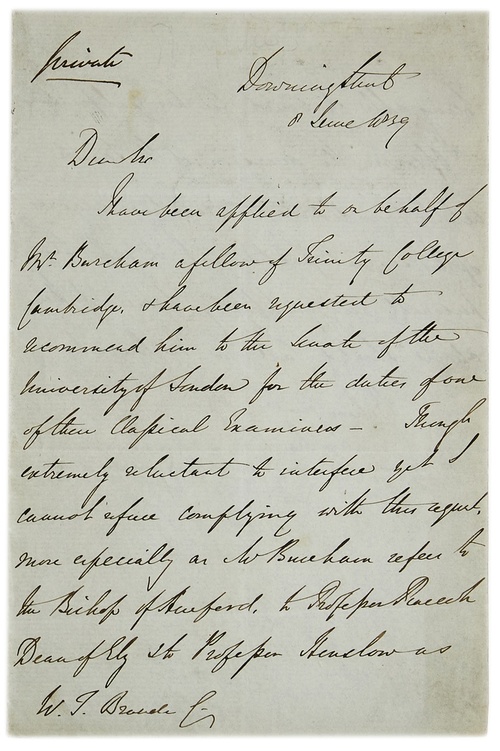 Private
Downing Street
8 June 1839
Dear Sir
I have been applied to on behalf of
Mr. Burcham a fellow of Trinity College
Cambridge, & have been requested to
recommend him to the Senate of the
University of London for the duties of one
of their Classical Examiners – Though
extremely reluctant to interfere yet I
cannot refuse complying with this request,
more especially as Mr Burcham refers to
the Bishop of Hereford, to Professor Peacock
Dean of Ely & to Professor Henslow as
W. T. Brande